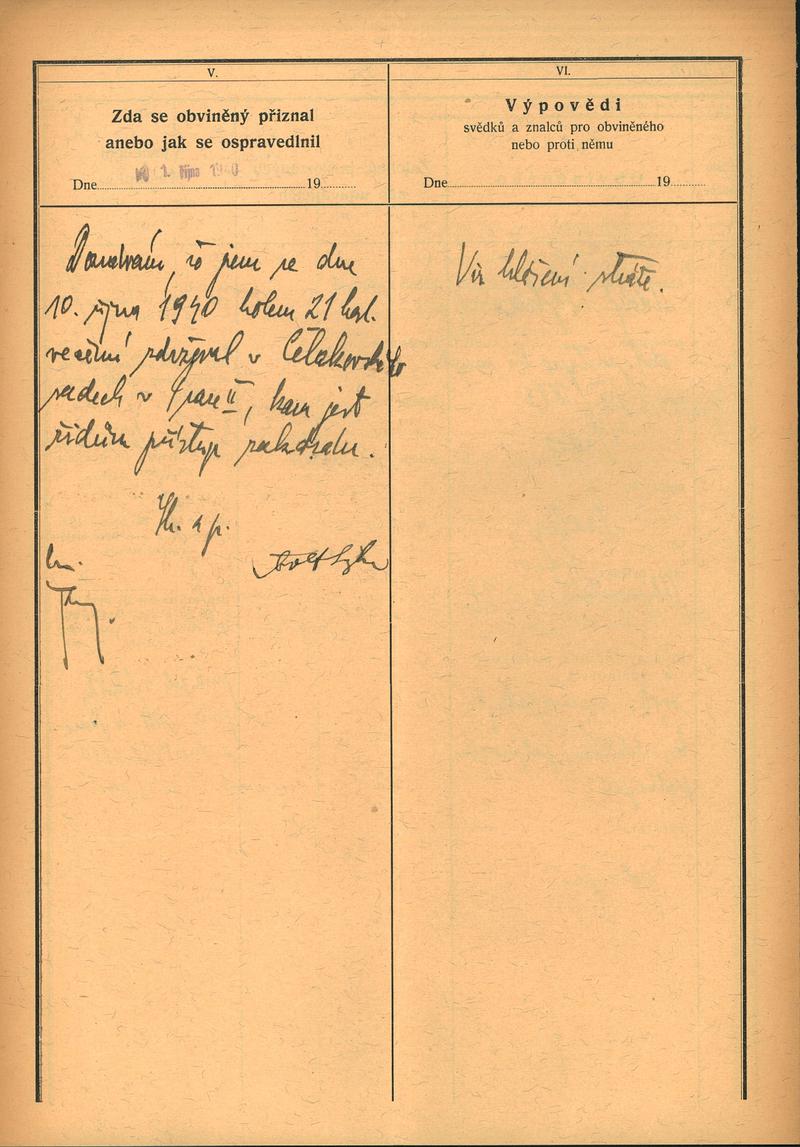 V.
Zda se obviněný přiznal
anebo jak se ospravedlnil
Dne 1. října 1940 19
Doznávám, že jsem se dne
10. října 1940 kolem 21 hod.
večerní zdržoval v Čelakovského
sadech v Praze II, kam jest
židům přístup zakázán.
VI.
Výpovědi
svědků a znalců pro obviněného
nebo proti němu
Dne 19
Viz hlášení stráže.